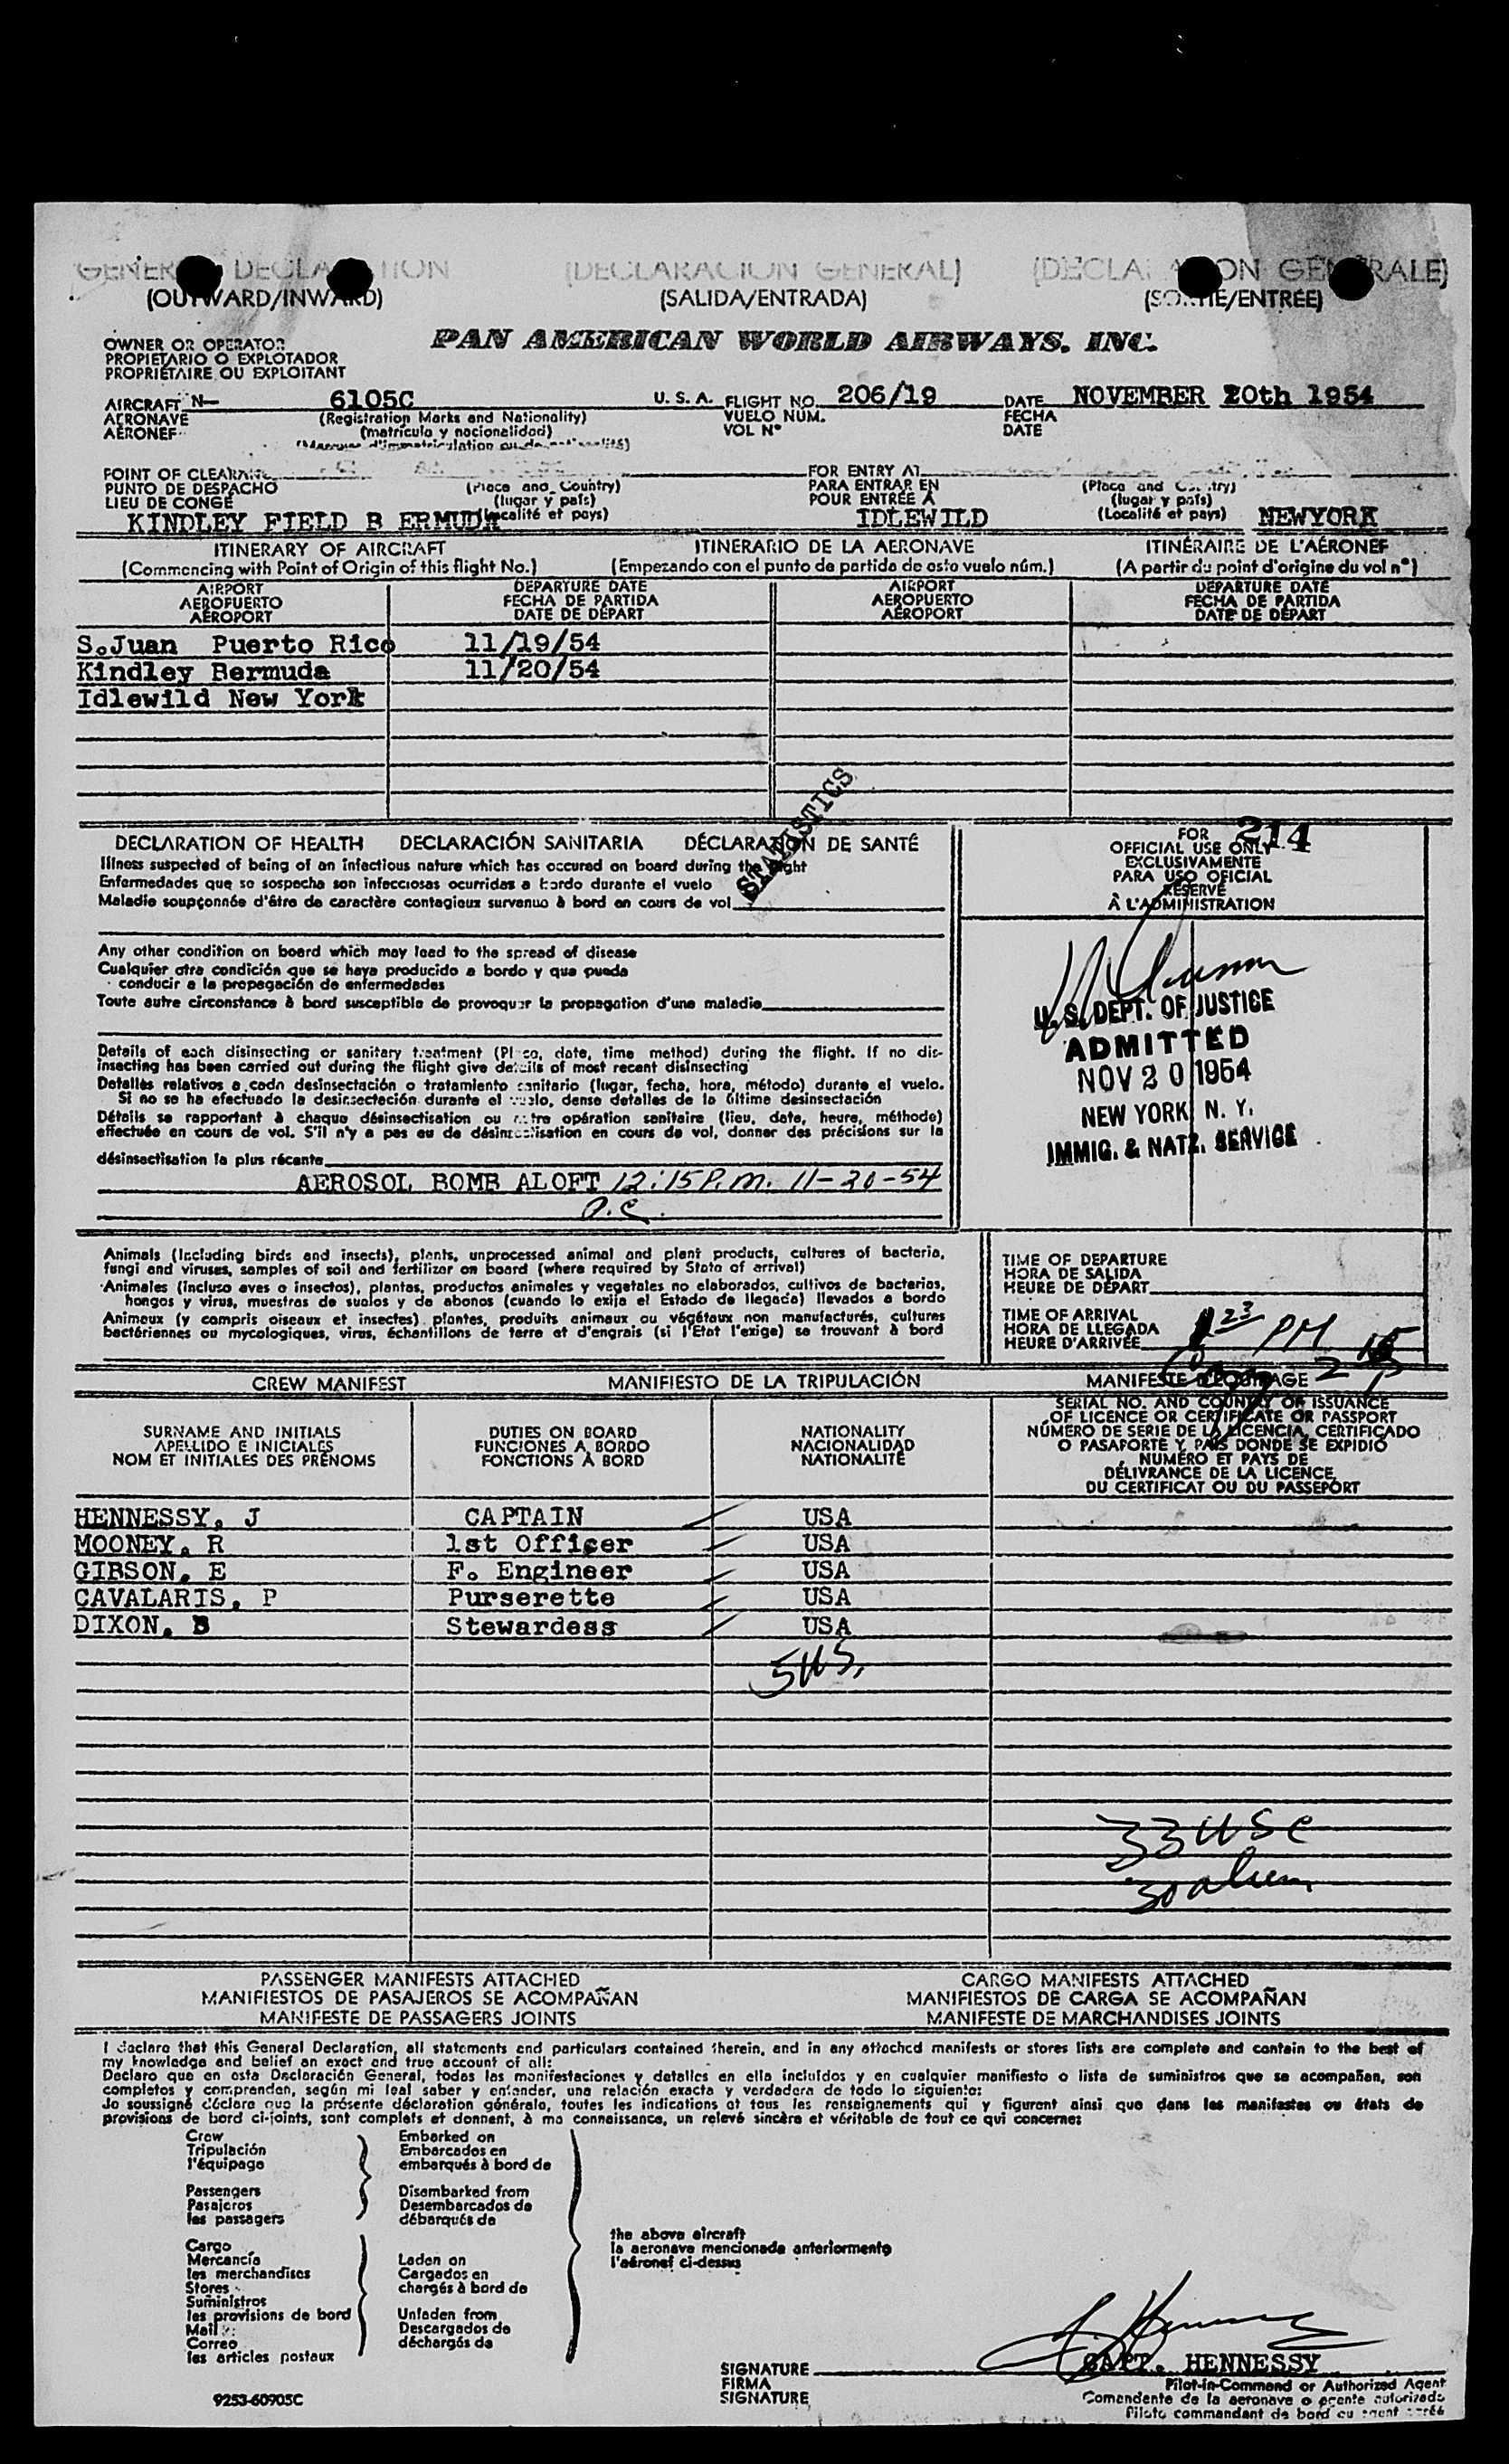 GENERAL DECLARATION (DECLARACION GENERAL) (DECLARATION GÉNÉRALE)
(OUTWARD/INWARD) (SALIDA/ENTRADA) (SORTIE/ENTRÉE)
OWNER OR OPERATOR
PROPIETARIO O EXPLOTADOR
PROPRIÉTAIRE OU EXPLOITANT
PAN AMERICAN WORLD AIRWAYS, INC.
AIRCRAFT N— 6105C U.S.A. FLIGHT NO. 206/19 DATE NOVEMBER 20th 1954
AERONAVE (Registration Marks and Nationality) VUELO NUM. FECHA
AÉRONEF (matrícula y nacionalidad) VOL N° DATE
(Marques d'immatriculation ou de nationalité)
POINT OF CLEARANCE FOR ENTRY AT
PUNTO DE DESPACHO (Place and Country) PARA ENTRAR EN (Place and Country)
LIEU DE CONGÉ (lugar y país) POUR ENTRÉE À (lugar y país)
KINDLEY FIELD B ERMUDA (Localité et pays) IDLEWILD (Localité et pays) NEWYORK
ITINERARY OF AIRCRAFT ITINERARIO DE LA AERONAVE ITINÉRAIRE DE L'AÉRONEF
(Commencing with Point of Origin of this flight No.) (Empezando con el punto de partida de este vuelo núm.) (A partir du point d'origine du vol n°)
AIRPORT DEPARTURE DATE AIRPORT DEPARTURE DATE
AEROPUERTO FECHA DE PARTIDA AEROPUERTO FECHA DE PARTIDA
AÉROPORT DATE DE DÉPART AÉROPORT DATE DE DÉPART
S.Juan Puerto Rico 11/19/54
Kindley Bermuda 11/20/54
Idlewild New York
STATISTICS
DECLARATION OF HEALTH DECLARACIÓN SANITARIA DÉCLARATION DE SANTÉ
Illness suspected of being of an infectious nature which has occured on board during the flight
Enfermedades que se sospecha son infecciosas ocurridas a bordo durante el vuelo
Maladie soupçonnée d'être de caractère contagieux survenue à bord en cours de vol
Any other condition on board which may lead to the spread of disease
Cualquier otra condición que se haya producido a bordo y que pueda
conducir a la propagación de enfermedades
Toute autre circonstance à bord susceptible de provoquer la propagation d'une maladie
Details of each disinsecting or sanitary treatment (Place, date, time method) during the flight. If no dis-
insecting has been carried out during the flight give details of most recent disinsecting
Detalles relativos a cada desinsectación o tratamiento sanitario (lugar, fecha, hora, método) durante el vuelo.
Si no se ha efectuado la desinsectación durante el vuelo, dense detalles de la última desinsectación
Détails se rapportant à chaque désinsectisation ou autre opération sanitaire (lieu, date, heure, méthode)
effectuée en cours de vol. S'il n'y a pas eu de désinsectisation en cours de vol, donner des précisions sur la
désinsectisation la plus récente
AEROSOL BOMB ALOFT 12:15 P.M. 11-20-54
FOR 214
OFFICIAL USE ONLY
EXCLUSIVAMENTE
PARA USO OFICIAL
RÉSERVÉ
À L'ADMINISTRATION
U. S. DEPT. OF JUSTICE
ADMITTED
NOV 20 1954
NEW YORK, N. Y.
IMMIG. & NATZ. SERVICE
Animals (Including birds and insects), plants, unprocessed animal and plant products, cultures of bacteria,
fungi and viruses, samples of soil and fertilizer on board (where required by State of arrival)
Animales (incluso aves o insectos), plantas, productos animales y vegetales no elaborados, cultivos de bacterias,
hongos y virus, muestras de suelos y de abonos (cuando lo exija el Estado de llegada) llevados a bordo
Animaux (y compris oiseaux et insectes) plantes, produits animaux ou végétaux non manufacturés, cultures
bactériennes ou mycologiques, virus, échantillons de terre et d'engrais (si l'Etat l'exige) se trouvant à bord
TIME OF DEPARTURE
HORA DE SALIDA
HEURE DE DÉPART
TIME OF ARRIVAL
HORA DE LLEGADA
HEURE D'ARRIVÉE 1 23 PM
CREW MANIFEST MANIFIESTO DE LA TRIPULACIÓN MANIFESTE D'ÉQUIPAGE
SURNAME AND INITIALS DUTIES ON BOARD NATIONALITY SERIAL NO. AND COUNTRY OF ISSUANCE
APELLIDO E INICIALES FUNCIONES A BORDO NACIONALIDAD OF LICENCE OR CERTIFICATE OR PASSPORT
NOM ET INITIALES DES PRÉNOMS FONCTIONS À BORD NATIONALITÉ NÚMERO DE SERIE DE LA LICENCIA, CERTIFICADO
O PASAPORTE Y PAÍS DONDE SE EXPIDIÓ
NUMÉRO ET PAYS DE
DÉLIVRANCE DE LA LICENCE,
DU CERTIFICAT OU DU PASSEPORT
HENNESSY, J CAPTAIN USA
MOONEY, R 1st Officer USA
GIBSON, E F. Engineer USA
CAVALARIS, P Purserette USA
DIXON, B Stewardess USA
5 US,
33 USC
30 alien
PASSENGER MANIFESTS ATTACHED CARGO MANIFESTS ATTACHED
MANIFIESTOS DE PASAJEROS SE ACOMPAÑAN MANIFIESTOS DE CARGA SE ACOMPAÑAN
MANIFESTE DE PASSAGERS JOINTS MANIFESTE DE MARCHANDISES JOINTS
I declare that this General Declaration, all statements and particulars contained therein, and in any attached manifests or stores lists are complete and contain to the best of
my knowledge and belief an exact and true account of all:
Declaro que en esta Declaración General, todas las manifestaciones y detalles en ella incluídos y en cualquier manifiesto o lista de suministros que se acompañan, son
completos y comprenden, según mi leal saber y entender, una relación exacta y verdadera de todo lo siguiente:
Je soussigné déclare que la présente déclaration générale, toutes les indications et tous les renseignements qui y figurent ainsi que dans les manifestes ou états de
provisions de bord ci-joints, sont complets et donnent, à ma connaissance, un relevé sincère et véritable de tout ce qui concerne:
Crew Embarked on
Tripulación Embarcados en
l'équipage embarqués à bord de
Passengers Disembarked from
Pasajeros Desembarcados de
les passagers débarqués de
the above aircraft
la aeronave mencionada anteriormente
l'aéronef ci-dessus
Cargo
Mercancía Laden on
les merchandises Cargados en
Stores chargés à bord de
Suministros
les provisions de bord Unladen from
Mail Descargados de
Correo déchargés de
les articles postaux
J. Hennessy
SIGNATURE CAPT. HENNESSY
FIRMA Pilot-in-Command or Authorized Agent
SIGNATURE Comandante de la aeronave o agente autorizado
Pilote commandant de bord ou agent agréé
9253-60905C